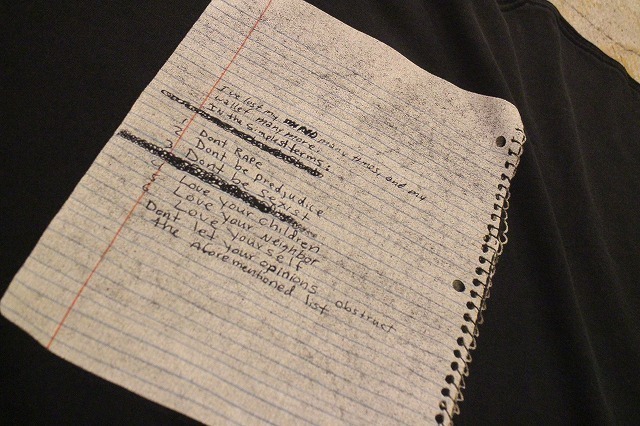 I've lost my mind many times, and my
wallet many more.
In the simplest terms:
1. Dont Rape
2. Dont be predjudice
3. Dont be sexist
4. Love your children
5. Love your Neighbor
6. Love yourself
Dont let your opinions obstruct
the Aforementioned list